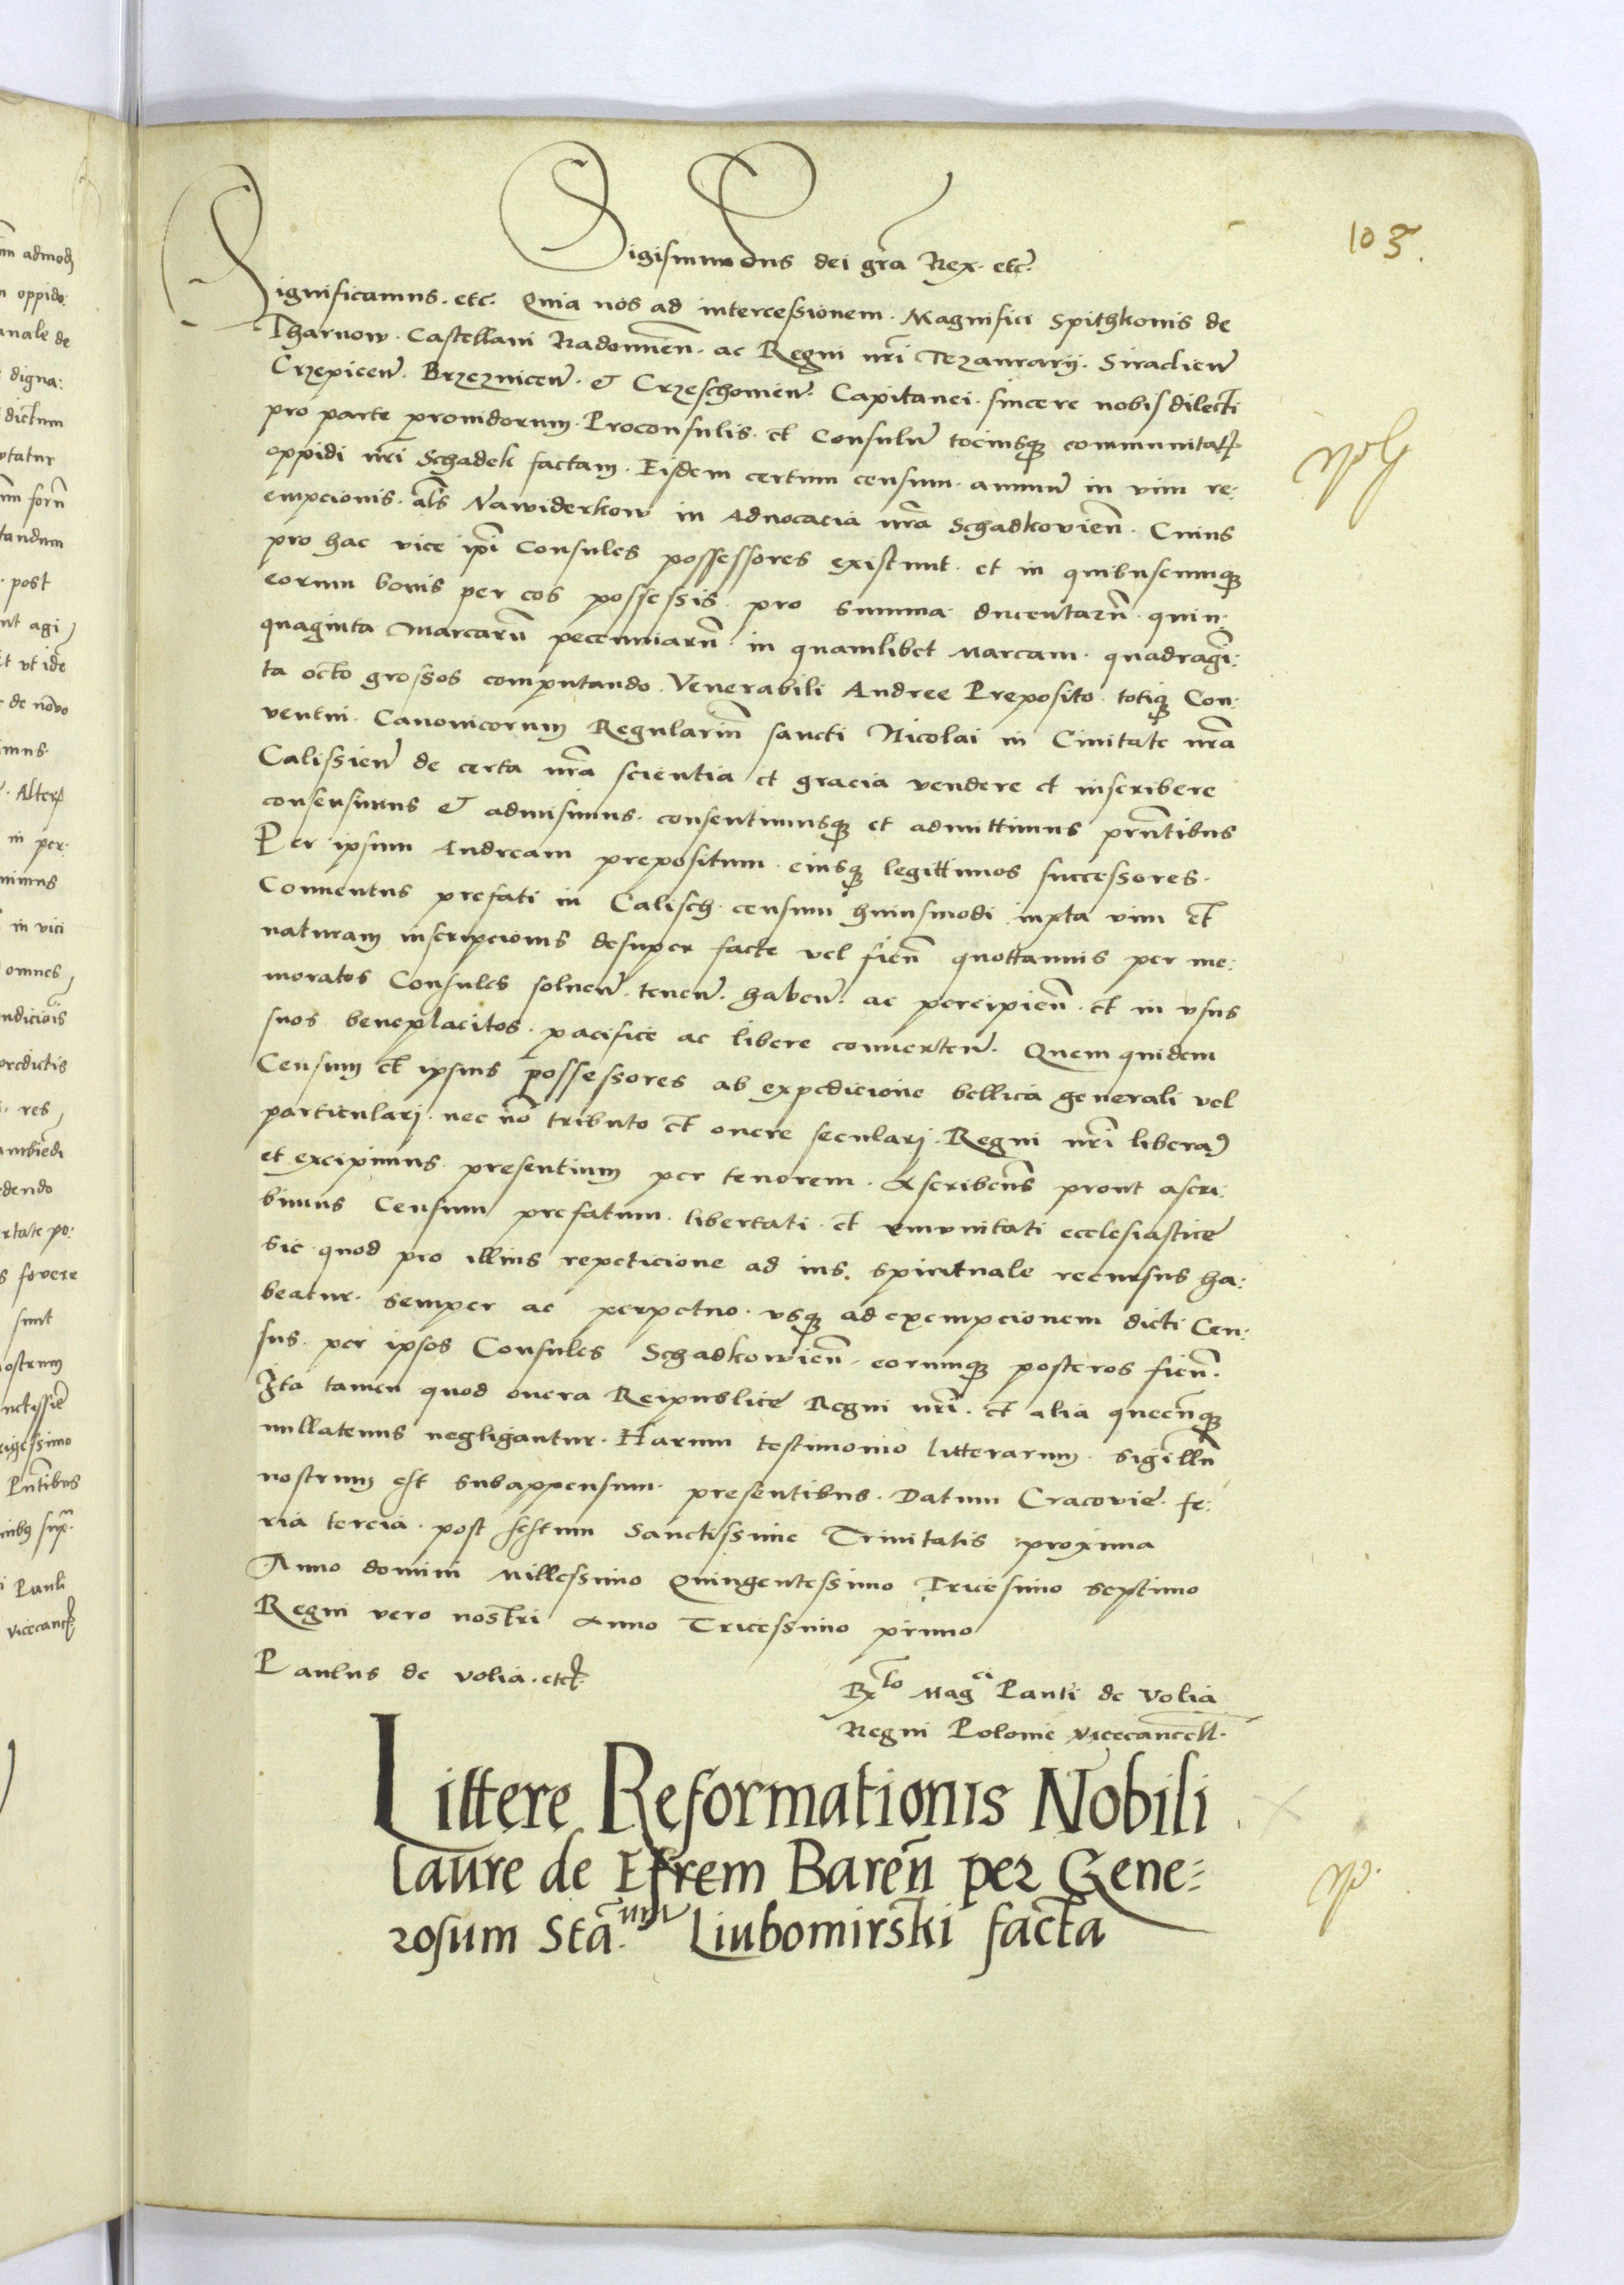 103.
Sigismundus dei gra͂ Rex. etc.
Significamus. etc. Quia nos ad intercessionem. Magnifici Spithkonis de
Tharnow. Castellani Radomien͂. ac Regni nr͂i Tezaurarij. Siradien͂
Crzepicen͂. Brzeznicen͂. et Crzeschouien͂. Capitanei. sincere nobis dilecti
pro parte prouidorum. Proconsulis. et Consulu͂ tociusq; communitat͂.
oppidi nr͂i Schadek factam. Eisdem certum censum. annuu͂ in vim re:
empcionis. al͂s Nawiderkow in Aduocacia nr͂a Schadkovien͂. Cuius
pro hac vice ip͂i Consules possessores existunt. et in quibuscunq;
eorum bonis per eos possessis. pro summa ducentaru͂. quin:
quaginta Marcaru͂ peccuniaru͂. in quamlibet Marcam. quadragi͂:
ta octo grossos computando. Venerabili Andree Preposito. totiq; Con:
ventui. Canonicorum Regulariu͂ sancti Nicolai in Ciuitate nr͂a
Calissien͂ de certa nr͂a scientia et gracia vendere et inscribere
consensimus et admisimus. consentimusq; et admittimus pr͂ntibus
Per ipsum Andream prepositum. eiusq; legittimos successores.
Conuentus prefati in Calisch. censum huiusmodi iuxta vim et
naturam inscripcionis desuper facte vel fien͂ quottannis per me:
moratos Consules soluen͂. tenen͂. haben͂. ac percipien͂. et in vsus
suos beneplacitos. pacifice ac libere conuerten͂. Quem quidem
Censum et ipsius possessores ab expedicione bellica generali vel
particulari. nec no͂ tributo et onere seculari. Regni nr͂i libera͂
et excipimus. presentium per tenorem. Ascriben͂s prout ascri:
bimus Censum prefatum. libertati. et emunitati ecclesiastice
sic. quod pro illius repeticione ad ius. spirituale recursus ha:
beatur. semper ac perpetuo. vsq; ad exempcionem dicti Cen:
sus. per ipsos Consules Schadkowien͂. eorumq; posteros fien͂.
Ita tamen quod onera Reipublice Regni nr͂i. et alia quecu͂q;
nullatenus negligantur. Harum testimonio litterarum. sigillu͂
nostrum est subappensum. presentibus. Datum Cracovie. fe:
ria tercia. post festum Sanctissime Trinitatis proxima
Anno domini Millessimo Quingentessimo Tricesimo septimo
Regni vero nostri Anno Tricessimo primo
Paulus de Volia. etc.
Rto Magci Pauli de Volia
Regni Polonie vicecancell.
Littere Reformationis Nobili
Laure de Efrem Baren͂ per Gene:
rosum Sta͂.um Liubomirski facta